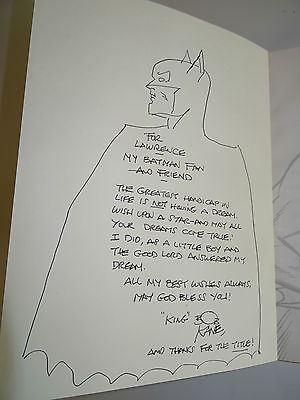 FOR
LAWRENCE
MY BATMAN FAN
AND FRIEND
THE GREATEST HANDICAP IN
LIFE IS NOT HAVING A DREAM.
WISH UPON A STAR-AND MAY ALL
YOUR DREAMS COME TRUE.
I DID, AS A LITTLE BOY AND
THE GOOD LORD ANSWERED MY
DREAM.
ALL MY BEST WISHES ALWAYS,
MAY GOD BLESS YOU!
"KING" BOB
KANE
AND THANKS FOR THE TITLE!